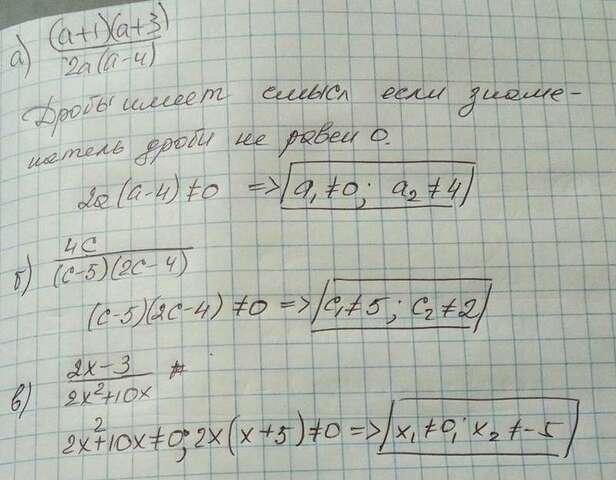 а) (a+1)(a+3)
2a(a-4)
Дробь имеет смысл если знаме-
натель дроби не равен 0.
2a(a-4)≠0 => a₁≠0; a₂≠4
б) 4c
(c-5)(2c-4)
(c-5)(2c-4)≠0 => c₁≠5; c₂≠2
в) 2x-3
2x²+10x
2x²+10x≠0; 2x(x+5)≠0 => x₁≠0; x₂≠-5